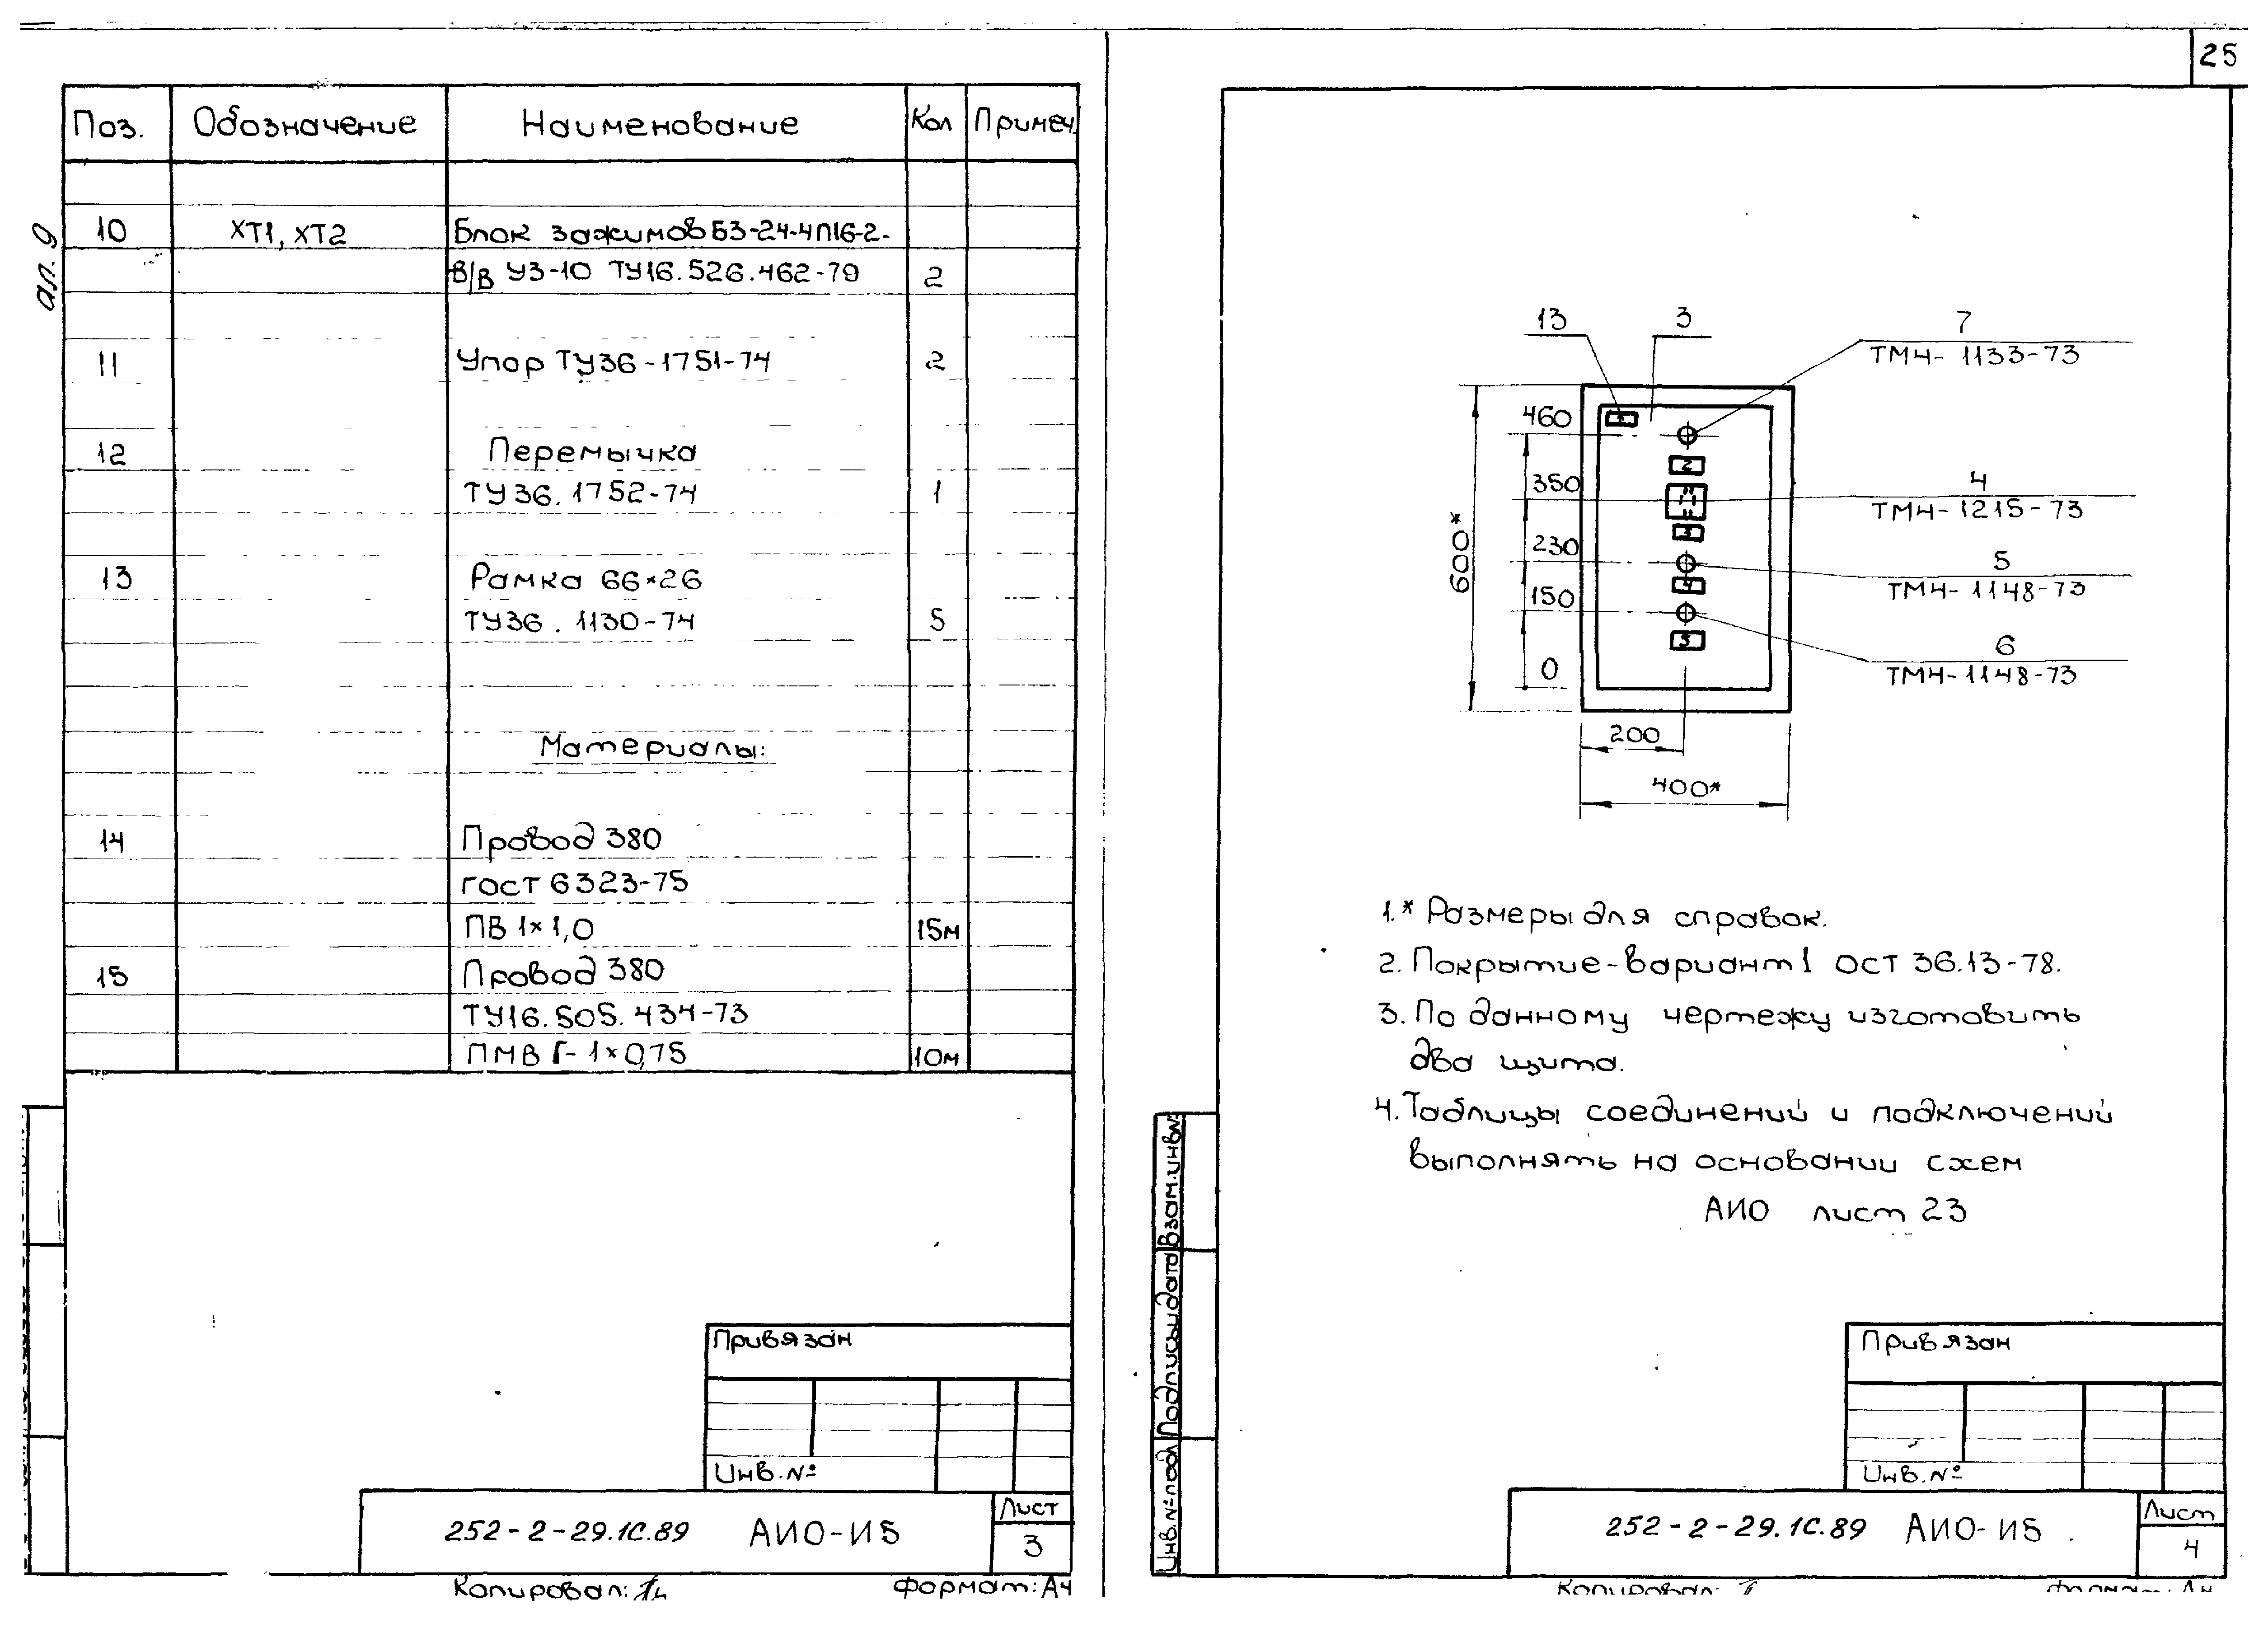 25
ал. 9
Поз. Обозначение Наименование Кол Примеч.
10 ХТ1, ХТ2 Блок зажимов БЗ-24-4П16-2-
В/В УЗ-10 ТУ16.526.462-79 2
11 Упор ТУ36-1751-74 2
12 Перемычка
ТУ36.1752-74 1
13 Рамка 66×26
ТУ36.1130-74 5
Материалы:
14 Провод 380
ГОСТ 6323-75
ПВ 1×1,0 15м
15 Провод 380
ТУ16.505.434-73
ПМВГ-1×0,75 10м
Привязан
Инв.№
252-2-29.1С.89 АИО-И5
Лист
3
Копировал:
Формат:А4
13 3 7
ТМ4-1133-73
460
2
350 4
ТМ4-1215-73
3
600*
230 5
ТМ4-1148-73
4
150
5
6
ТМ4-1148-73
0
200
400*
1.* Размеры для справок.
2. Покрытие-вариант 1 ОСТ 36.13-78.
3. По данному чертежу изготовить
два щита.
4. Таблицы соединений и подключений
выполнять на основании схем
АИО лист 23
Взам.инв№
Подпись и дата
Инв.№подл
Привязан
Инв.№
252-2-29.1С.89 АИО-И5
Лист
4
Копировал:
Формат:А4